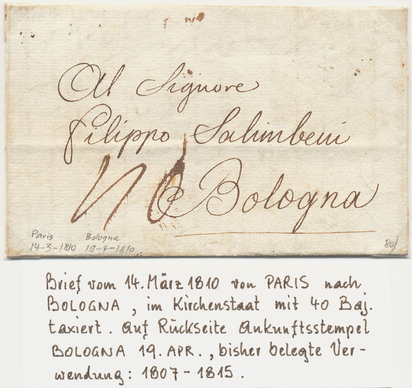 Al Signore
Filippo Salimbeni
Bologna
Paris Bologna
14-3-1810 19-4-1810
80/
Brief vom 14. März 1810 von PARIS nach
BOLOGNA, im Kirchenstaat mit 40 Baj.
taxiert. Auf Rückseite Ankunftsstempel
BOLOGNA 19. APR., bisher belegte Ver-
wendung: 1807 - 1815.